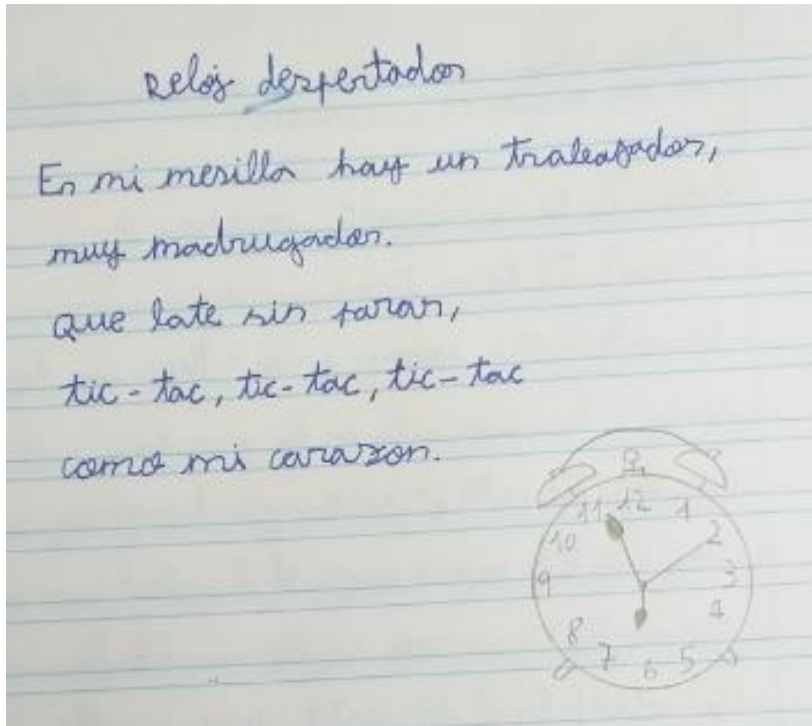 Reloj despertador
En mi mesilla hay un trabajador,
muy madrugador.
que late sin parar,
tic-tac, tic-tac, tic-tac
como mi corazon.
11 12 1
10 2
9 3
8 4
7 6 5